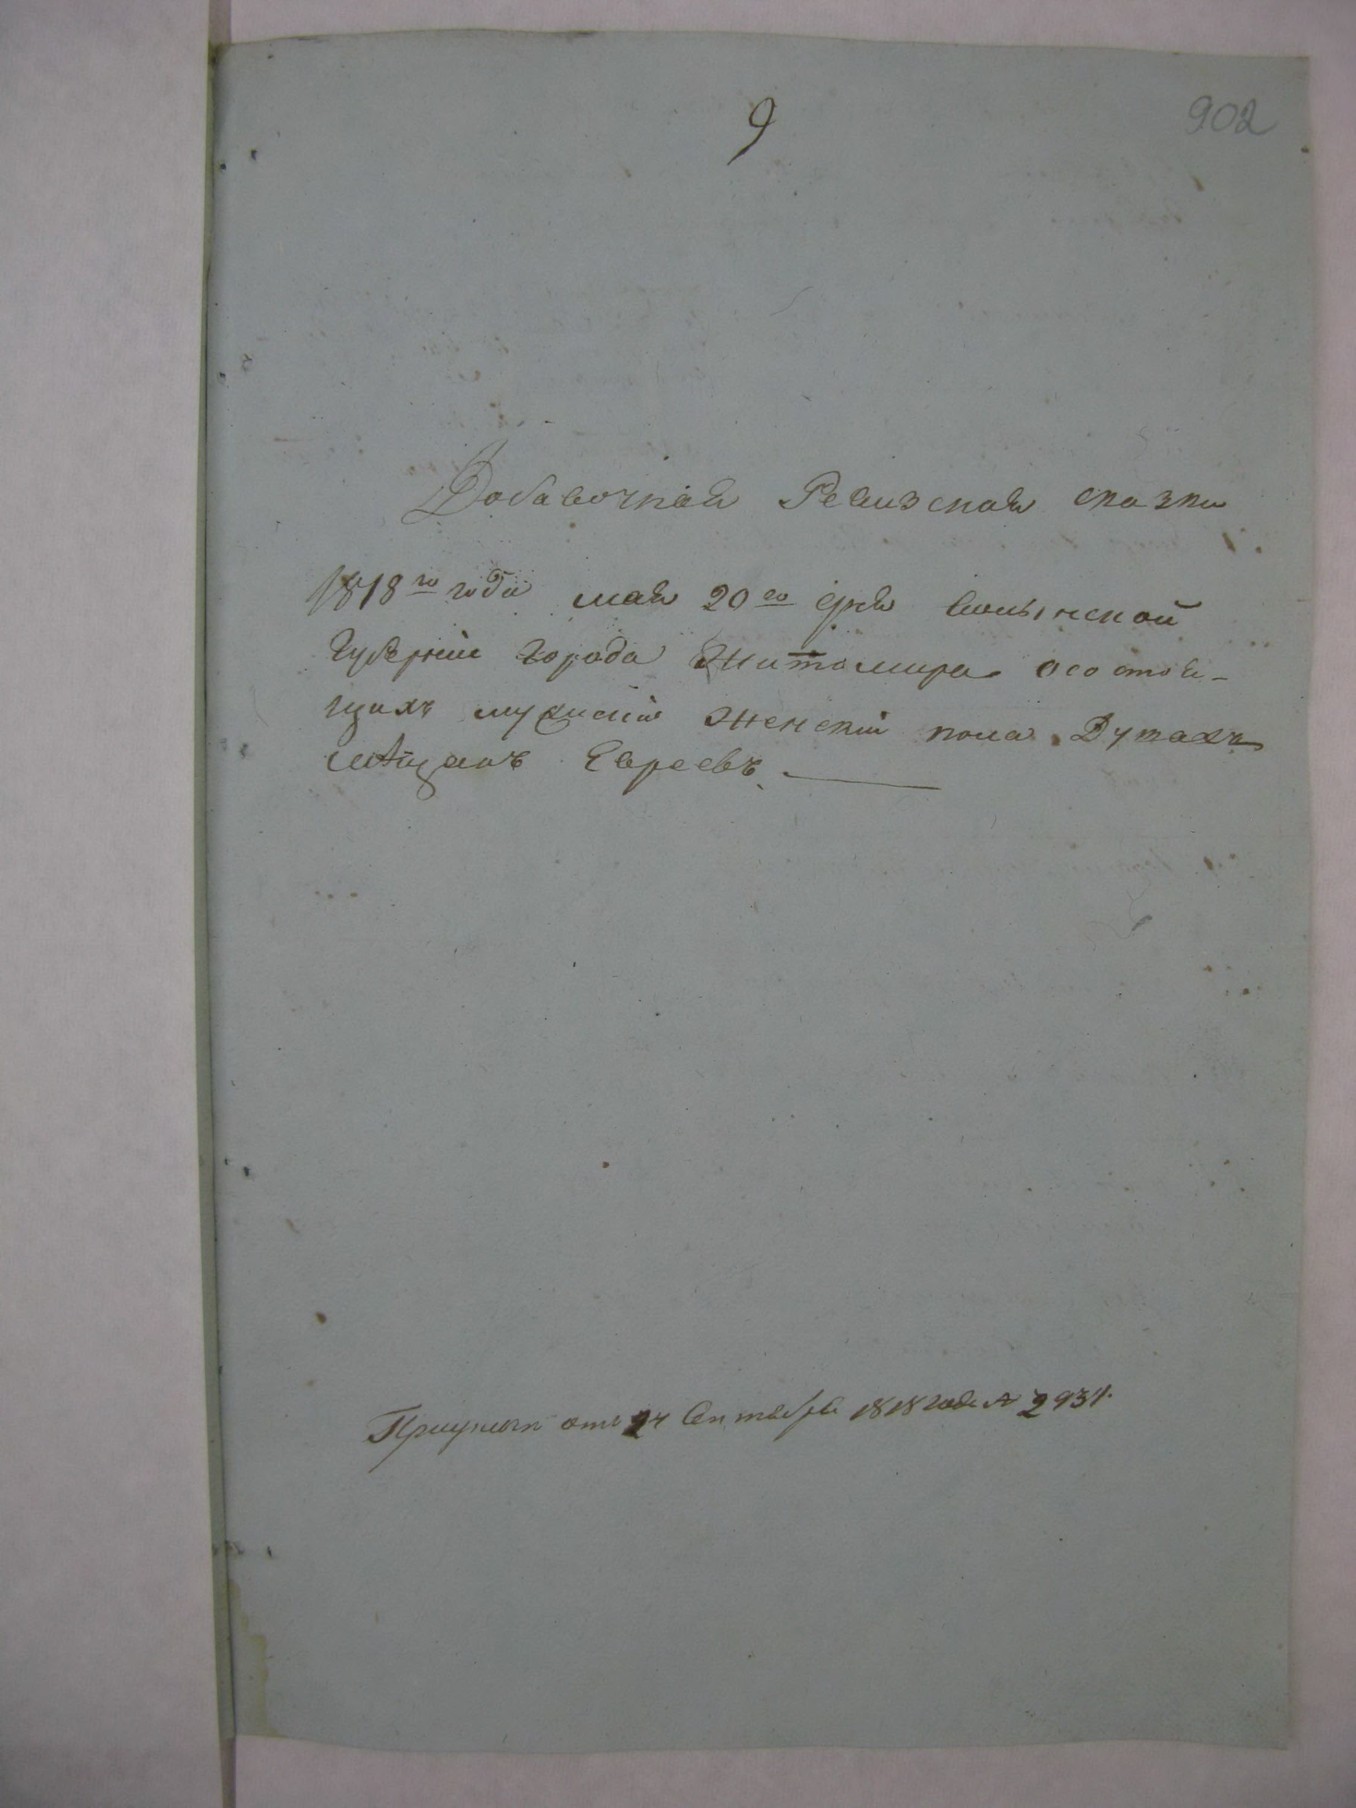 9
902
Добавочная Ревизская сказка
1818го года мая 20го дня волынской
Губернии города Житомира осостоя-
щихъ мужска женска пола Душахъ
мѣщанъ Евреевъ
от 24 Сентября 1818 года № 2934.